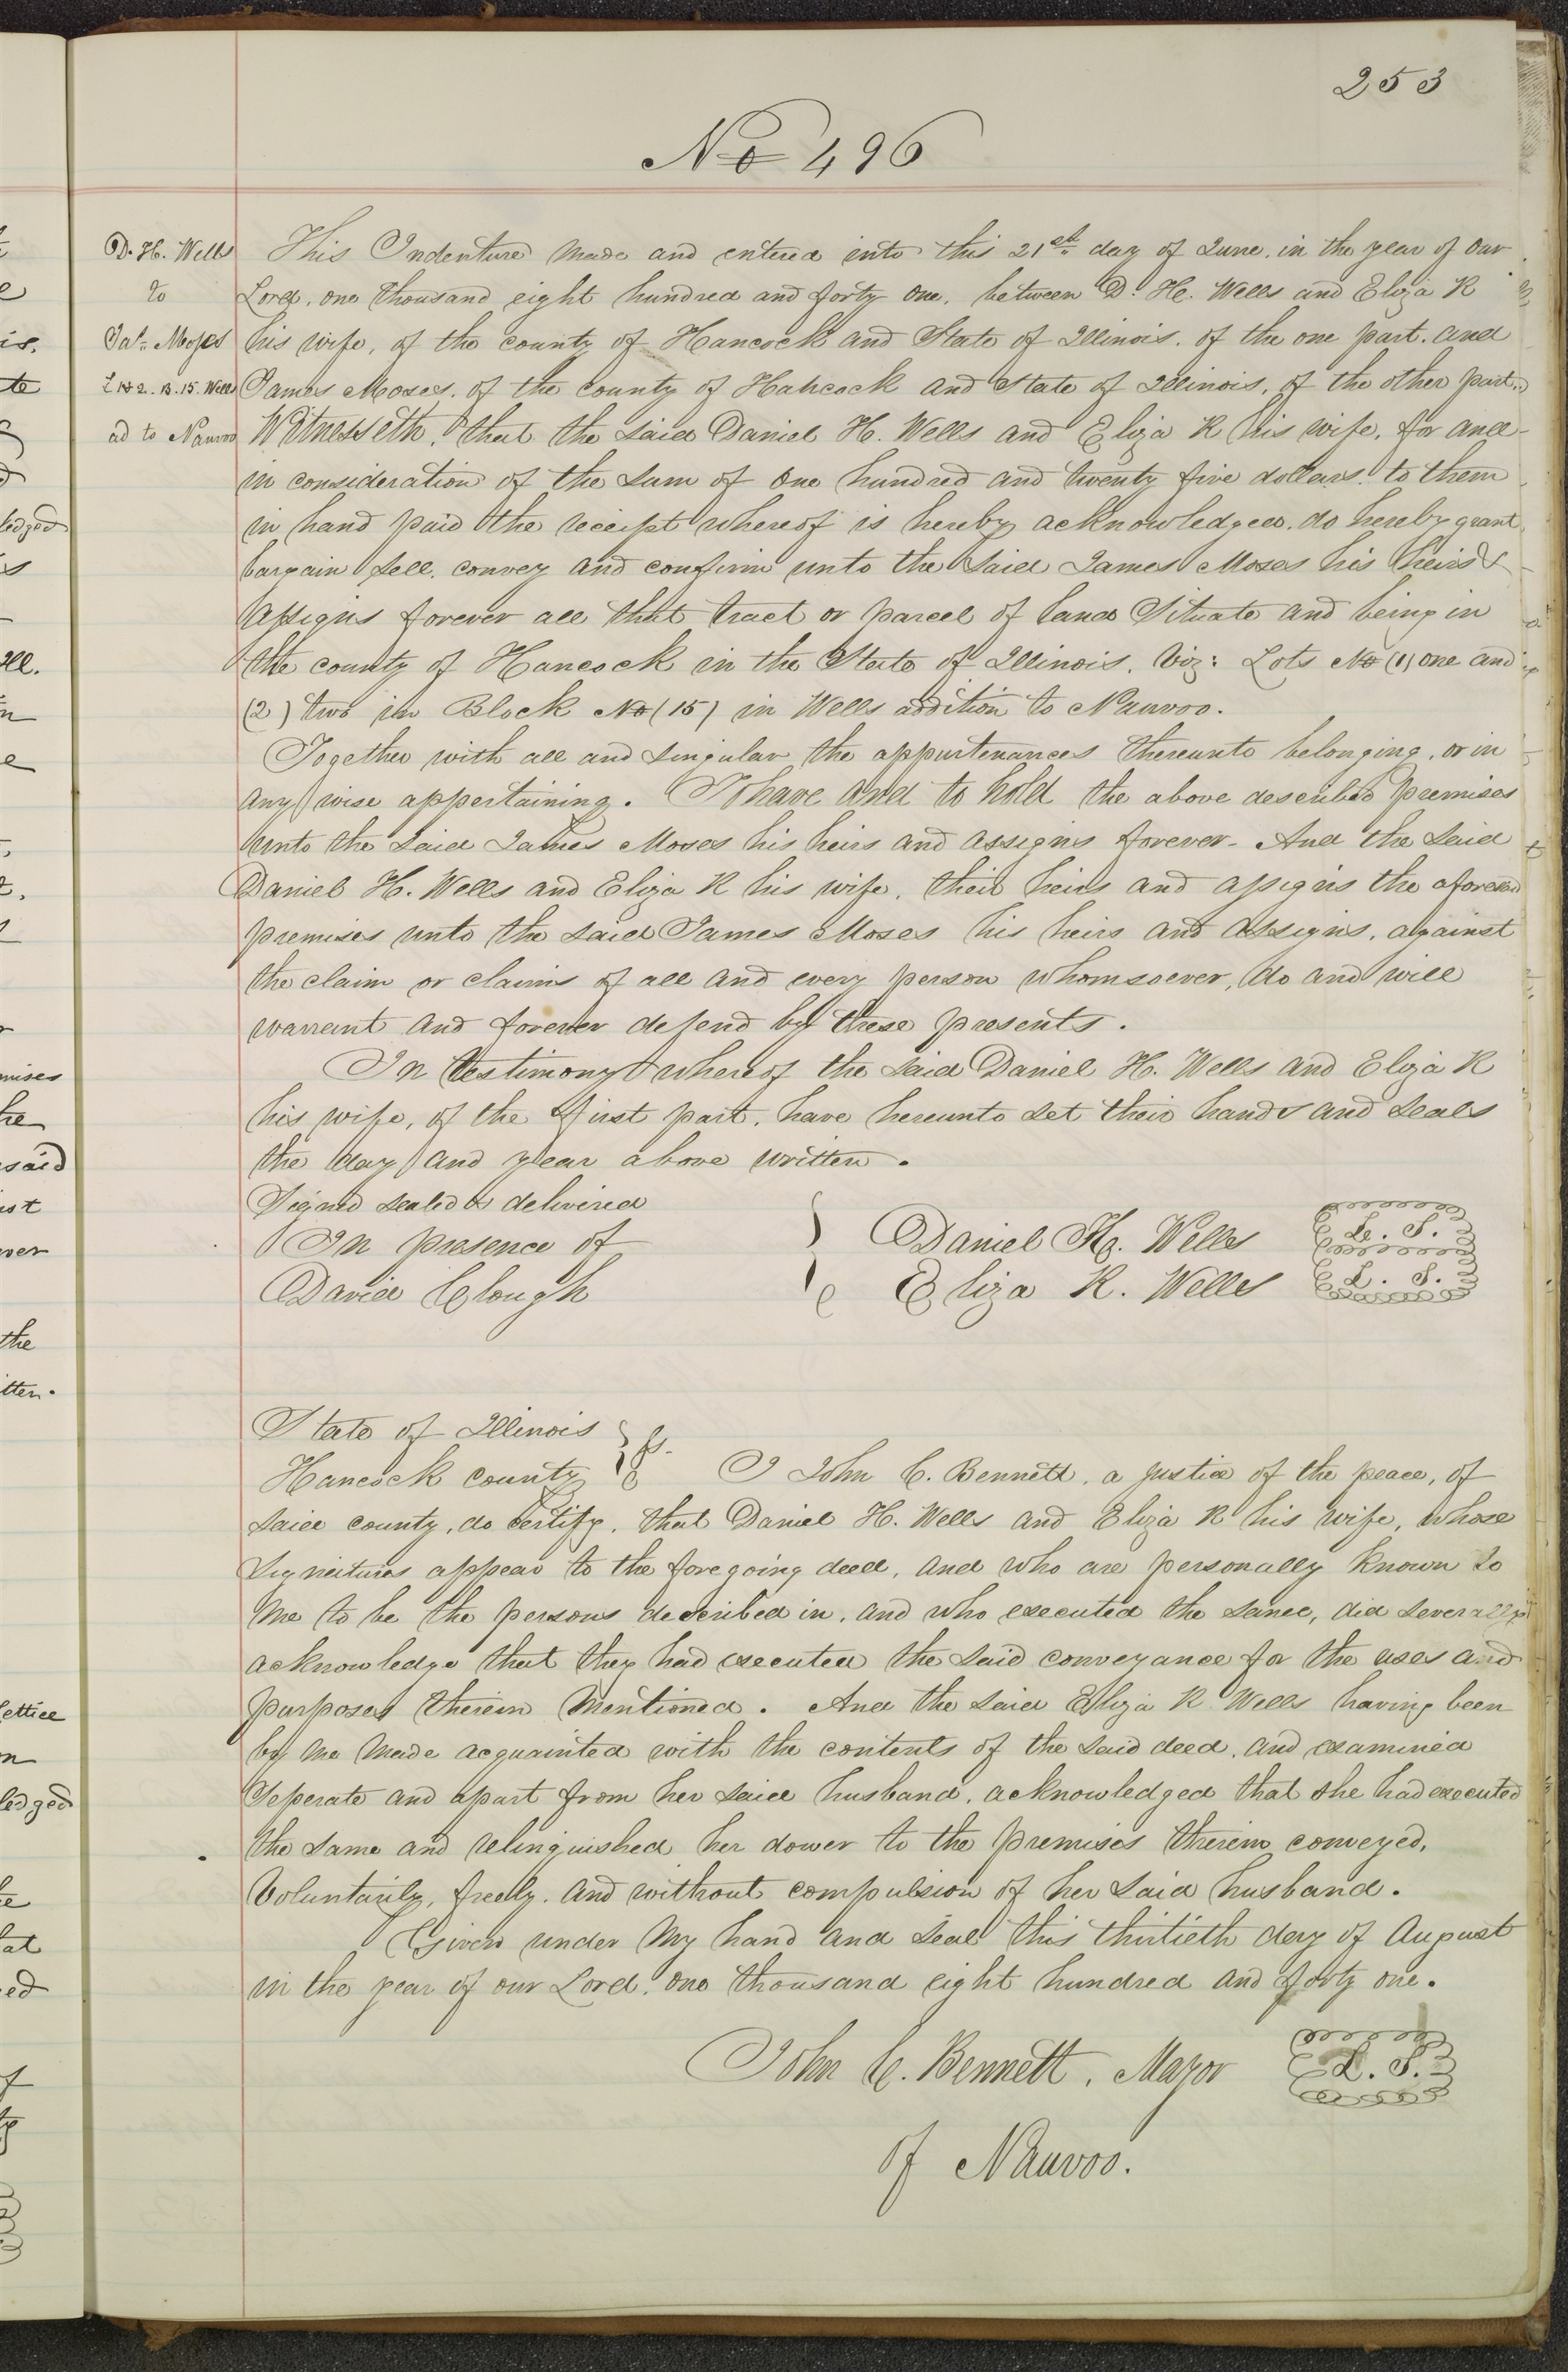 253
No 496
D. H. Wells
to
Jas. Moses
L 1 & 2. B. 15. Well
ad to Nauvoo
This Indenture made and entered into this 21st day of June, in the year of our
Lord, one thousand eight hundred and forty one, between D. H. Wells and Eliza R
his wife, of the county of Hancock and State of Illinois, of the one part, and
James Moses, of the county of Hancock and State of Illinois, of the other part.
Witnesseth, that the said Daniel H. Wells and Eliza R his wife, for and
in consideration of the sum of one hundred and twenty five dollars, to them
in hand paid the receipt whereof is hereby acknowledged, do hereby grant,
bargain sell, convey and confirm unto the said James Moses his heirs &
assigns forever all that tract or parcel of land Situate and being in
the county of Hancock in the State of Illinois, Viz: Lots No (1) one and
(2) two in Block No (15) in Wells addition to Nauvoo.
Together with all and singular the appurtenances thereunto belonging, or in
any wise appertaining. To have and to hold the above described premises
unto the said James Moses his heirs and assigns forever - And the said
Daniel H. Wells and Eliza R his wife, their heirs and assigns the aforesaid
premises unto the said James Moses his heirs and assigns, against
the claim or claims of all and every person whomsoever, do and will
warrant and forever defend by these presents.
In testimony whereof the said Daniel H. Wells and Eliza R
his wife, of the first part, have hereunto set their hands and seals
the day and year above written.
Signed sealed & delivered
In presence of
David Clough
Daniel H. Wells L. S.
Eliza R. Wells L. S.
State of Illinois
Hancock county ss.
I John C. Bennett, a justice of the peace, of
said county, do certify, that Daniel H. Wells and Eliza R his wife, whose
Signatures appear to the foregoing deed, and who are personally known to
me to be the persons described in, and who executed the same, did severally
acknowledge that they had executed the said conveyance for the uses and
purposes therein mentioned. And the said Eliza R Wells having been
by me made acquainted with the contents of the said deed, and examined
Seperate and apart from her said husband, acknowledged that she had executed
the same and relinquished her dower to the premises therein conveyed,
Voluntarily, freely, and without compulsion of her said husband.
Given under my hand and seal this thirtieth day of August
in the year of our Lord, one thousand eight hundred and forty one.
John C. Bennett, Mayor L. S.
of Nauvoo.